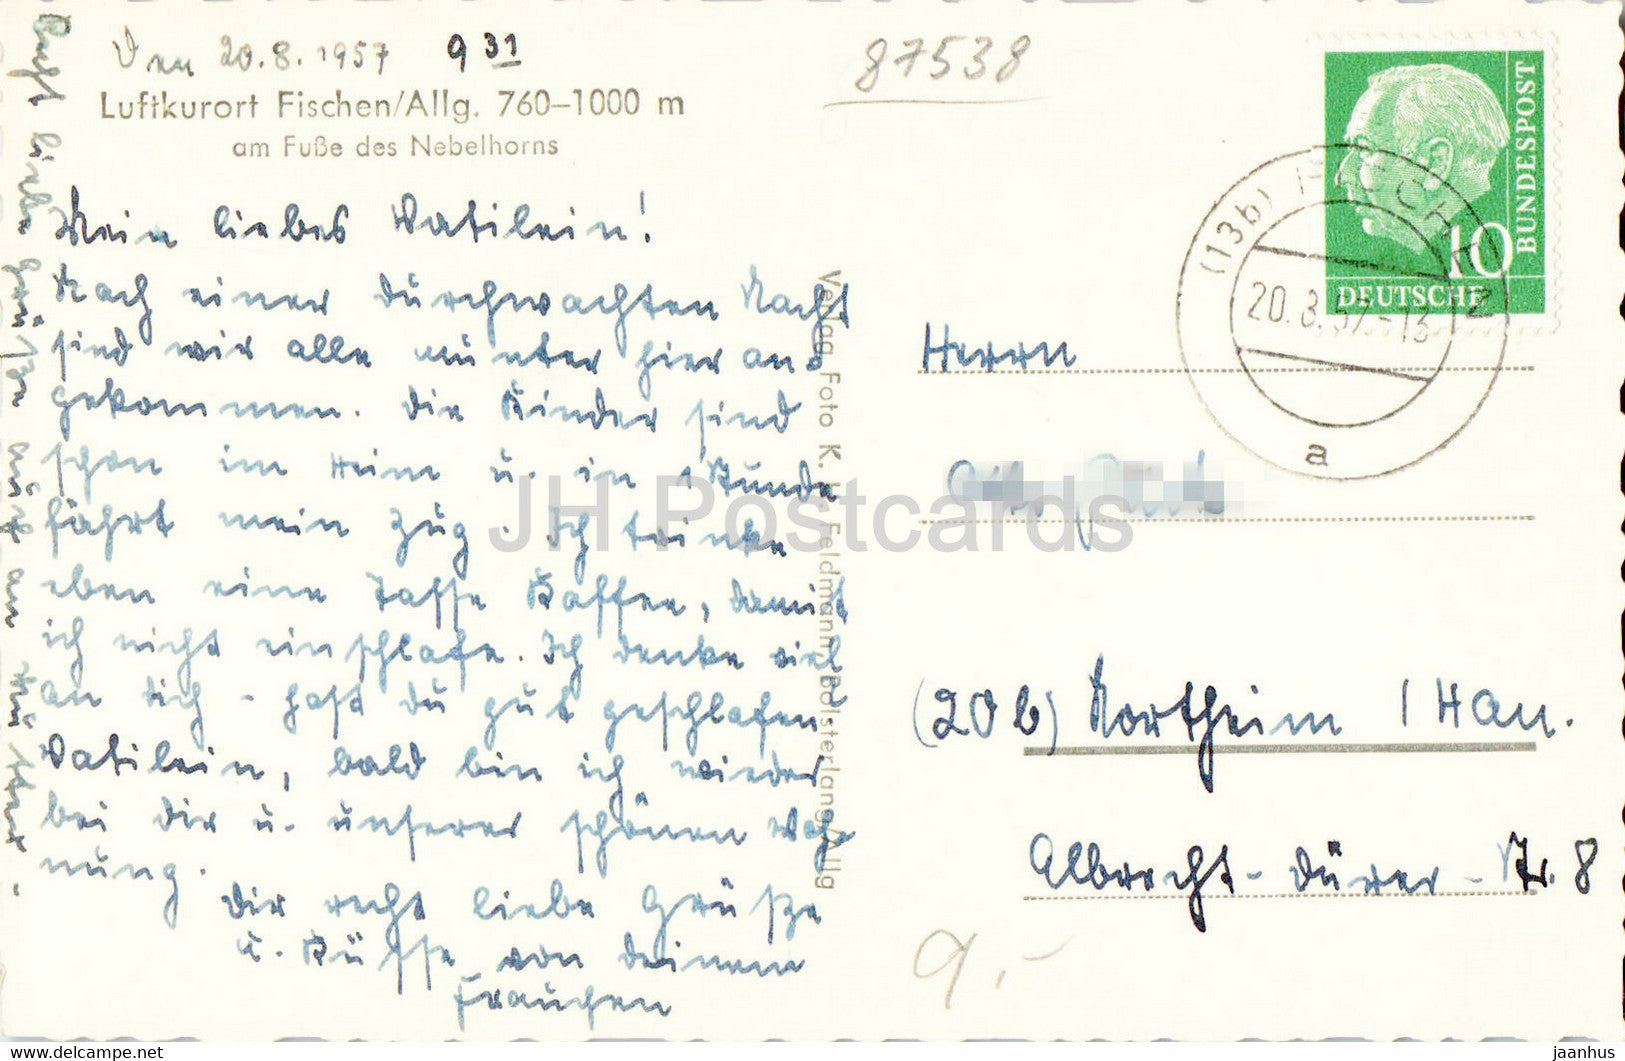 Den 20.8.1957 9 31
87538
Luftkurort Fischen/Allg. 760–1000 m
am Fuße des Nebelhorns
Mein liebes Vatilein!
Nach einer durchwachten Nacht
sind wir alle munter hier an
gekommen. Die Kinder sind
schon im Heim u. in 1 Stunde
fährt mein Zug. Ich trinke
eben eine Tasse Kaffee, damit
ich nicht einschlafe. Ich denke viel
an Dich - hast Du gut geschlafen
Vatilein, bald bin ich wieder
bei Dir u. unserer schönen Woh
nung.
Dir recht liebe Grüße
u. Küsse von Deinem
Frauchen
Recht liebe Grüße auch an Mutter.
Verlag Foto K. Feldmann, Bolsterlang/Allg
DEUTSCHE
BUNDESPOST
10
(13b) FISCHEN
20.8.57-13
a
Herrn
(20b) Northeim / Han.
Albrecht-Dürer-Str. 8
9,-
JH Postcards
https://www.delcampe.net
jaanhus